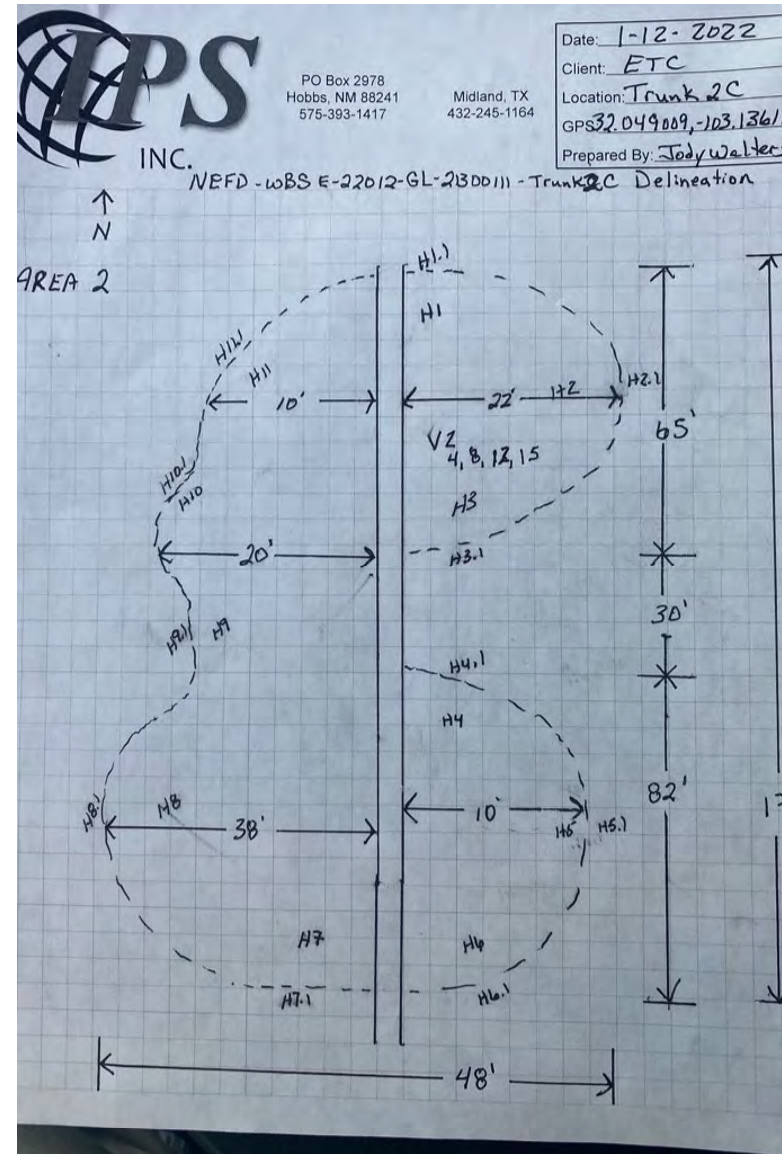 IPS
INC.
PO Box 2978
Hobbs, NM 88241
575-393-1417
Midland, TX
432-245-1164
Date: 1-12-2022
Client: ETC
Location: Trunk 2C
GPS 32.049009,-103.1361
Prepared By: Jody Walter
NEFD-WBS E-22012-GL-21300111-Trunk2C Delineation
N
AREA 2
H1.1
H1
H11.1
H11
10'
22'
H2
H2.1
65'
V2
4, 8, 12, 15
H10.1
H10
H3
20'
H3.1
30'
H9.1
H9
H4.1
H4
82'
H8.1
H8
38'
10'
H5
H5.1
17
H7
H6
H7.1
H6.1
48'